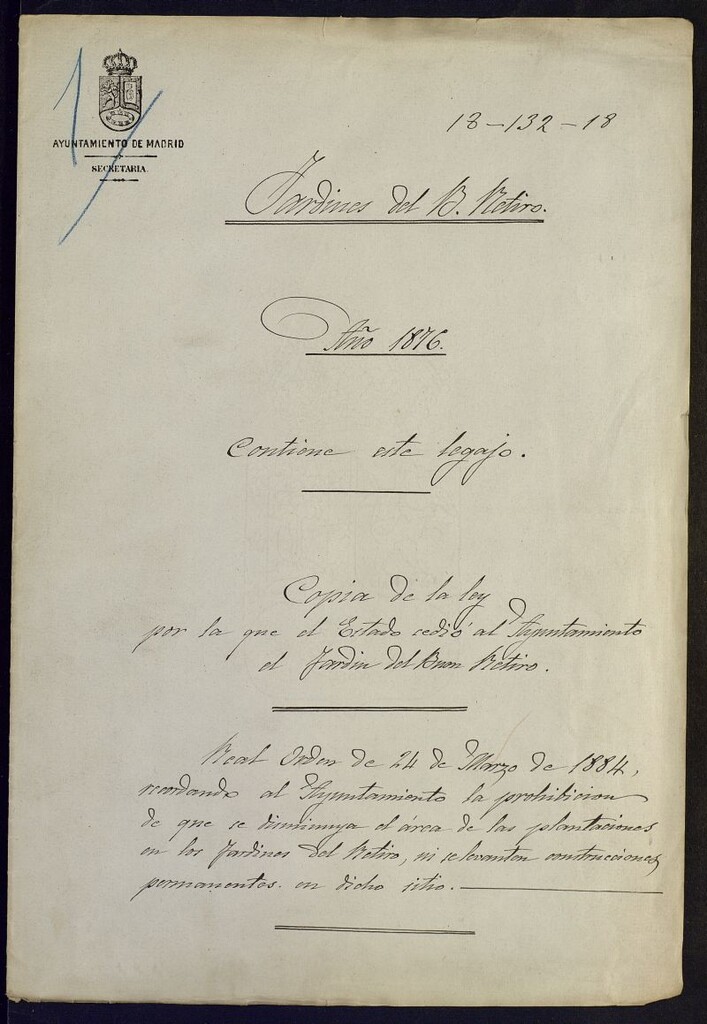 AYUNTAMIENTO DE MADRID
SECRETARIA.
13-132-18
Jardines del B. Retiro.
Año 1876.
Contiene este legajo.
Copia de la ley
por la que el Estado cedió al Ayuntamiento
el Jardin del Buen Retiro.
Real Orden de 24 de Marzo de 1884,
recordando al Ayuntamiento la prohibicion
de que se disminuya el área de las plantaciones
en los Jardines del Retiro, ni se levanten construcciones
permanentes en dicho sitio.